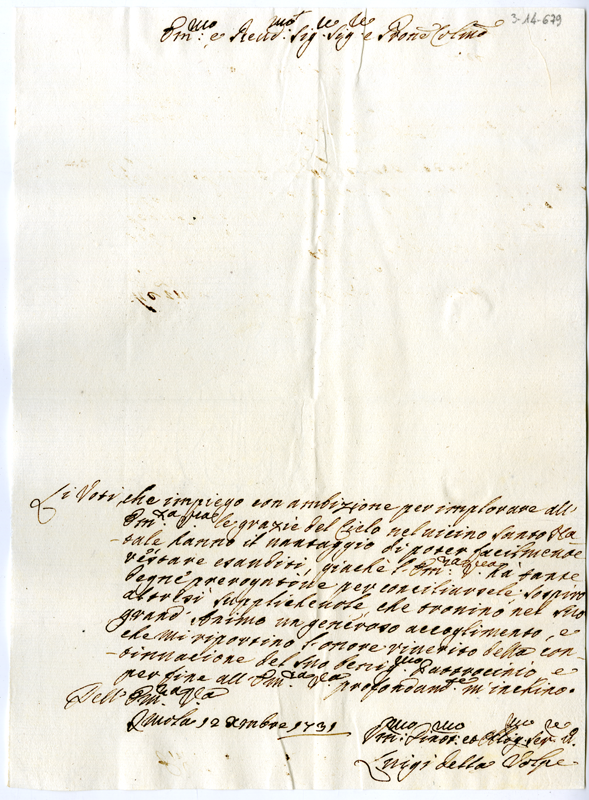 3-14-679
Em.mo e Reud.mo Sig.r Sig.re e Prone Colmo
Li Voti, che impiego con ambizione per implorare all'
Em.za V.ra le grazie del Cielo nel uicino Santo Na-
tale hanno il uantaggio di poter facilmente
restare esauditi, giache l'Em.za V.ra hà tante
degne prerogatiue per conciliarsele. Sospiro
altresì supplicheuole, che trouino nel suo
grand'Animo un generoso accoglimento, e
che mi riportino l'onore riuerito della con-
tinuazione del suo Patrocinio e
per fine all'Em.za V.ra profondam.te m'inchino.
Dell'Em.za V.ra
Imola 12 Xmbre 1731
Vm.mo Diuot.mo ed Obblig. Ser.re
Luigi della Volpe